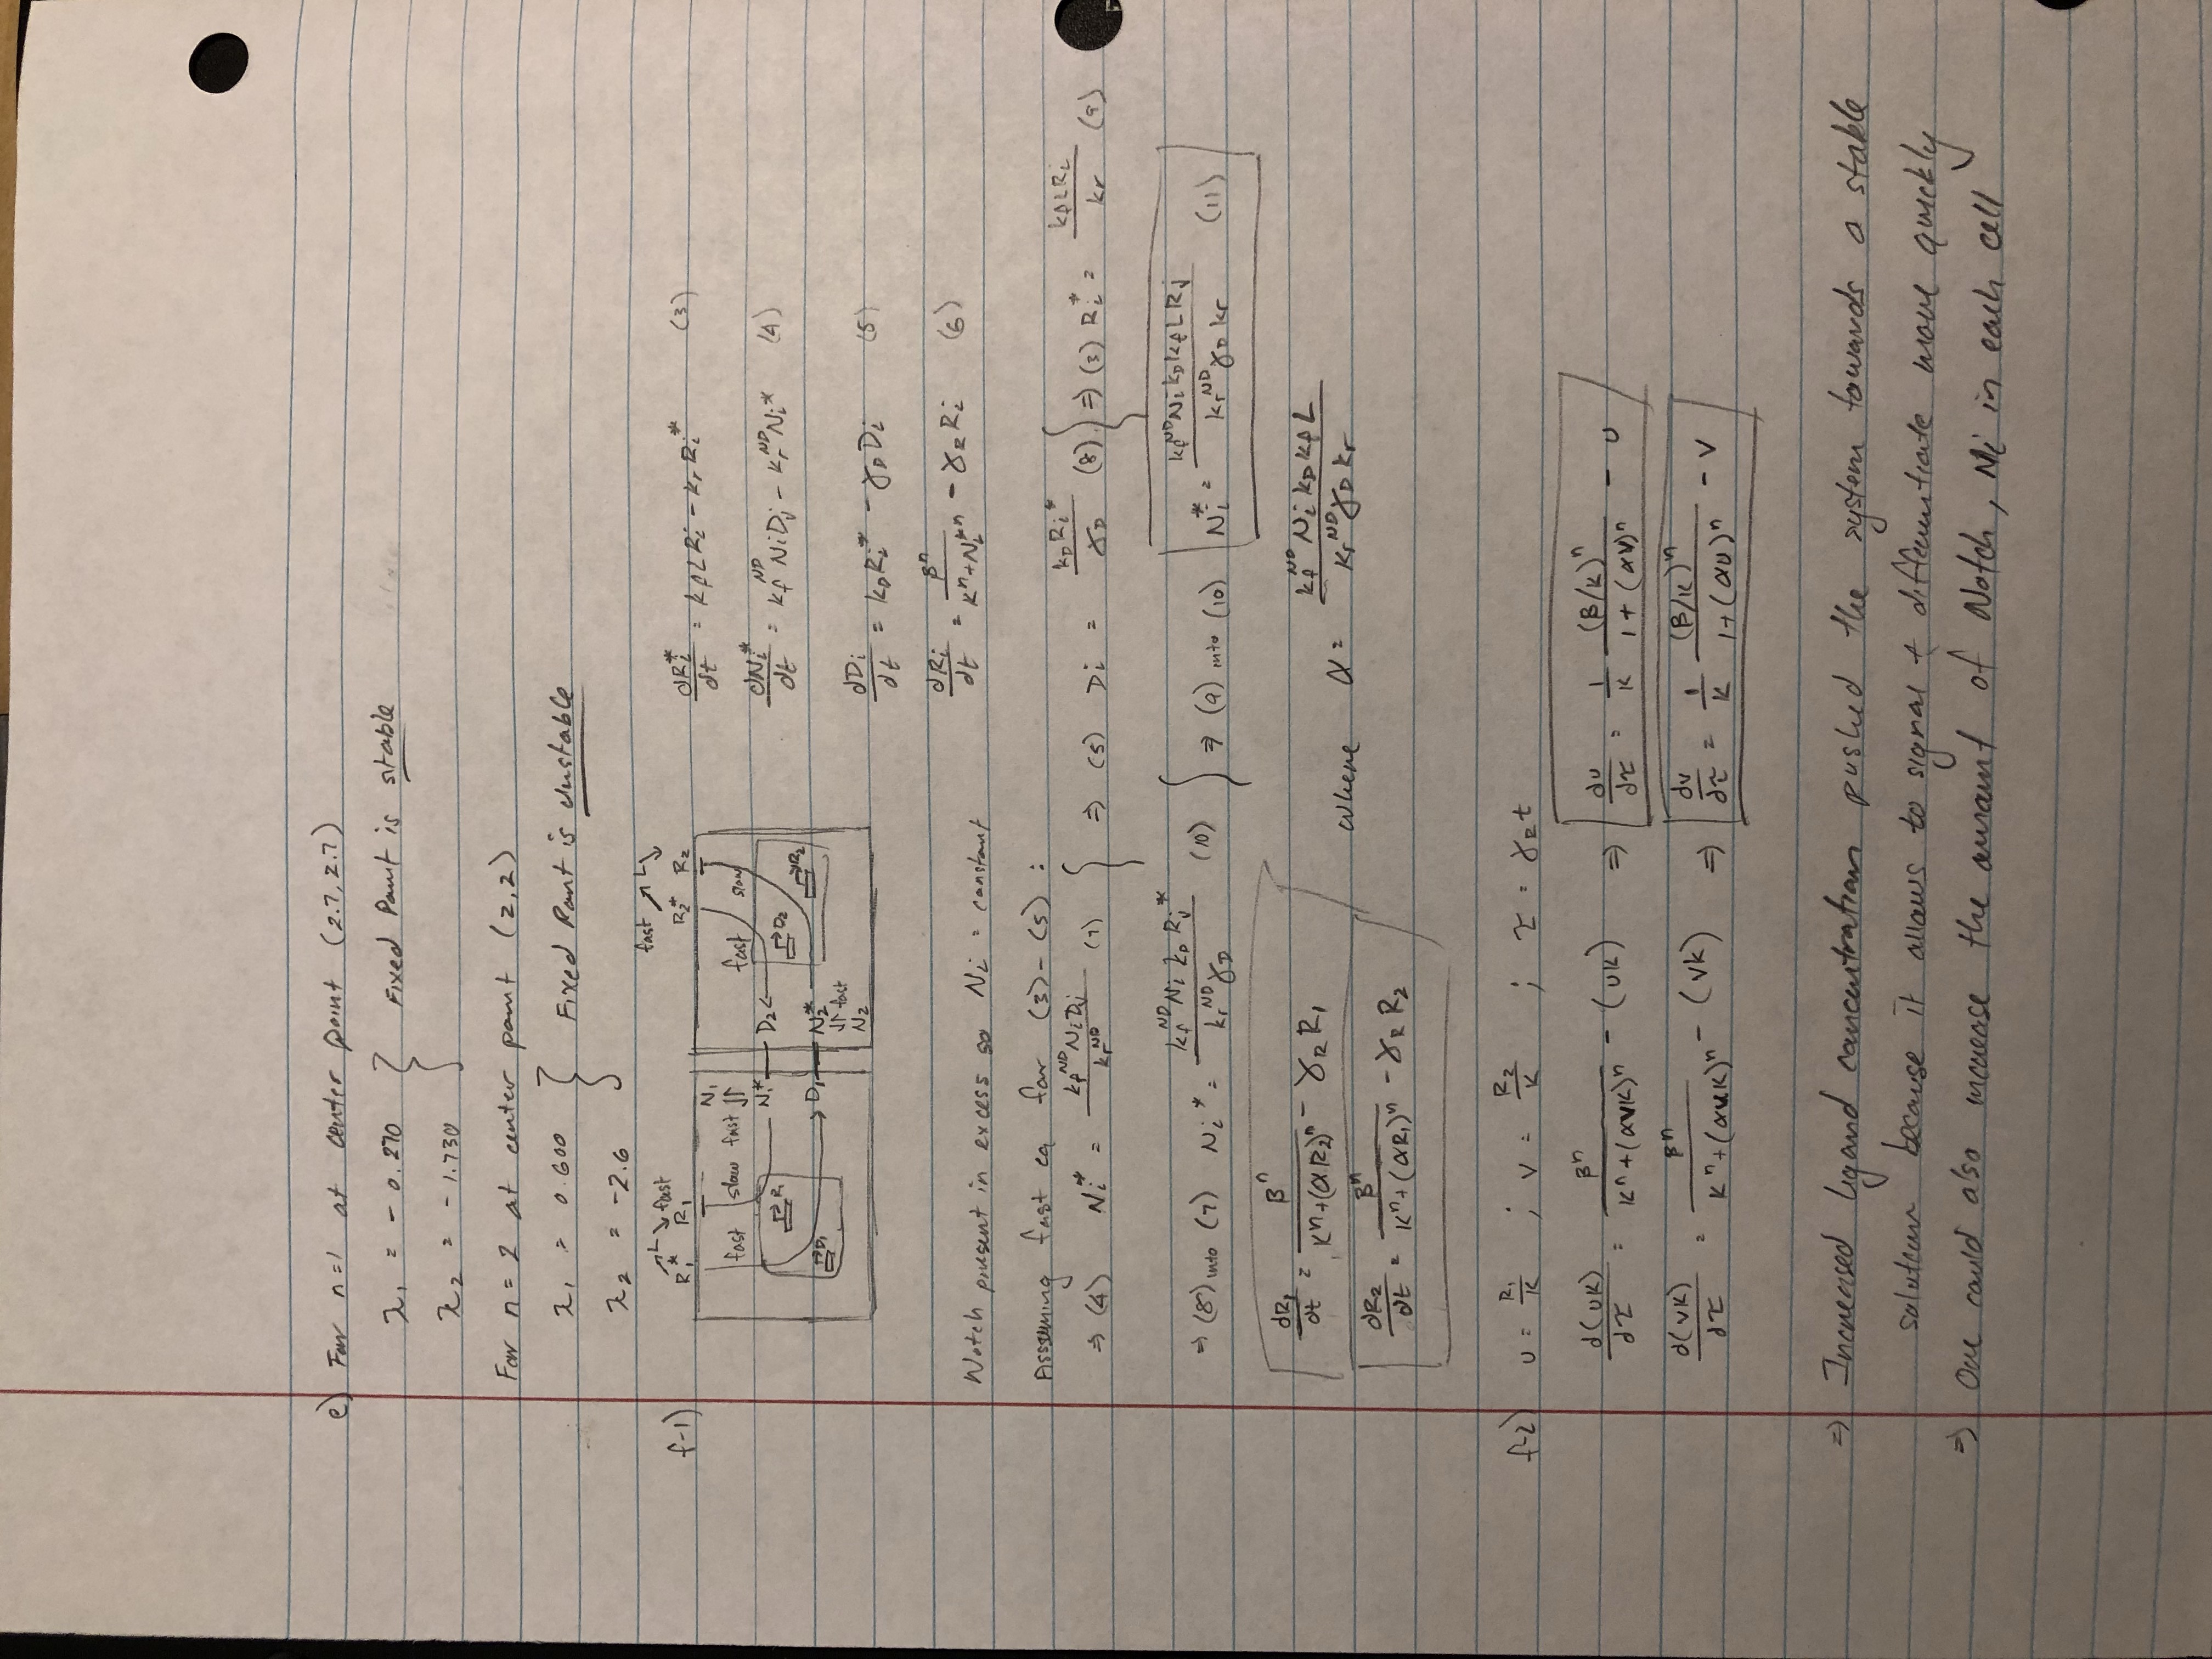 e) For n=1 at center point (2.7, 2.7)
λ₁ = -0.270 } Fixed Point is stable
λ₂ = -1.730
For n=2 at center point (2,2)
λ₁ = 0.600 } Fixed Point is Unstable
λ₂ = -2.6
f-1)
L fast
R₁* R₁
fast L
R₂* R₂
N₁
fast slow fast ⇃↾
fast slow
N₁* D₂
R₁ D₂
D₁ D₁ N₂* R₂
⇃↾ fast
N₂
dRi*/dt = kfLRi - krRi* (3)
dNi*/dt = kf^ND NiDj - kr^ND Ni* (4)
dDi/dt = kDRi* - γDDi (5)
dRi/dt = β^n/(K^n+Ni*^n) - γRRi (6)
Notch present in excess so Ni = constant
Assuming fast eq for (3)-(5) :
⇒ (4) Ni* = kf^ND NiDj/kr^ND (7) } ⇒ (5) Di = kDRi*/γD (8) } ⇒ (3) Ri* = kfLRi/kr (9)
⇒ (8) into (7) Ni* = kf^ND Ni kD Rj*/(kr^ND γD) (10) } ⇒ (9) into (10) Ni* = kf^ND NikDkfLRj/(kr^ND γD kr) (11)
dR₁/dt = β^n/(K^n+(αR₂)^n) - γRR₁
where α = kf^ND Ni kDkfL/(kr^ND γD kr)
dR₂/dt = β^n/(K^n+(αR₁)^n) - γRR₂
f-2) u = R₁/K ; v = R₂/K ; τ = γRt
d(uK)/dτ = β^n/(K^n+(αvK)^n) - (uK) ⇒ du/dτ = 1/K (β/K)^n/(1+(αv)^n) - u
d(vK)/dτ = β^n/(K^n+(αuK)^n) - (vK) ⇒ dv/dτ = 1/K (β/K)^n/(1+(αu)^n) - v
⇒ Increased ligand concentration pushed the system towards a stable
solution because it allows to signal + differentiate more quickly
⇒ One could also increase the amount of Notch, Ni in each cell